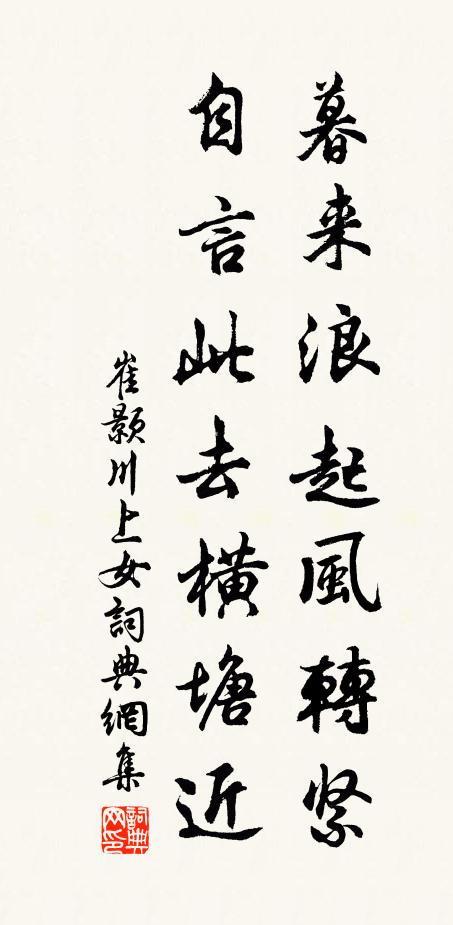 暮来浪起風轉緊
自言此去橫塘近
崔顥川上女詞典網集
詞典
网印